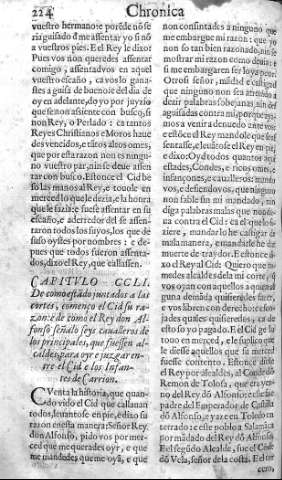 224 Chronica
vuestro hermano: e porẽde nõ se
ria guisado q̃ me assentar yo si nõ
a vuestros pies. E el Rey le dixo:
Pues vos non queredes assentar
comigo, assentadvos en aquel
vuestro escaño, ca vos lo ganas-
tes a guisa de bueno: e del dia de
oy en adelante, do yo por juyzio
que se non assiente con busco, si
non Rey, o Perlado: ca tantos
Reyes Christianos e Moros haue
des vencidos, e tãtos altos omes,
que por esta razon non es ningu-
no vuestro par, nin se deue assen-
tar con busco. Estonce el Cid be
so las manos al Rey, e touole en
merced lo que le dezia, e la honra
que le fazia: e fuese assentar en su
escaño, e arderredor del se assen-
taron todos los suyos, los que de
suso oystes por nombres: e de-
pues que todos fueron assenta-
dos, dixo el Rey, que callassen.
CAPITVLO CCLI.
De como estãdo juntados a las
cortes, començo el Cid su ra-
zon: e de como el Rey don Al-
fonso señalo seys caualleros de
los principales, que fuessen al-
caldes para oyr e juzgar en-
tre el Cid e los Infan-
tes de Carrion.
CVenta la historia, que quan-
do vido el Cid que callauan
todos, leuantose en pie, e dixo su
razon en esta manera: Señor Rey
don Alfonso, pido vos por mer-
ced que me querades oyr, e que
me mandedes, que me oyã, e que
non consintades a ninguno que
me embargue mi razon: que yo
non so tan bien razonado, nin se
mostrar mi razon como deuia: e
si me embargaren ser lo ya peor.
Otrosi señor, mãdad e castigad
que ninguno non sea atreuido a
dezir palabras sobejanas, nin des
aguisadas contra mi, porque ga-
mos a venir a denuesto ante vos:
e estõce el Rey mandole que se as
sentasse, e leuãtose el Rey en pie,
e dixo: Oyd todos quantos aqui
estades, Condes, e ricos omes, e
infançones, e caualleros: mando
vos, e defiendovos, que ninguno
non fable sin mi mandado, nin
diga palabras malas que non de-
ua contra el Cid: ca el que lo hi-
ziere, mandarlo he castigar de
mala manera, e mandarle he dar
muerte de traydor. E estonce di-
xo el Rey al Cid: Quiero que to-
medes alcaldes de la mi corte, q̃
vos oyan con aquellos a quien al
guna demãda quisieredes fazer,
e vos libren con derecho essa de-
mãda que quisieredes fazer, ca de
esto so yo pagado. E el Cid ge lo
touo en merced, e le suplico que
le diesse aquellos que su merced
fuesse contento. Estonce diole
el Rey por alcaldes, al Conde dõ
Remon de Tolosa, que era yer-
no del Rey dõ Alfonso: e este fue
padre del Emperador de Castilla
dõ Alfonso, e yaze en Toledo en
terrado: e este poblo a Salamãca
por mãdado del Rey dõ Alfonso.
E el segũdo Alcalde, fue el Cõde
dõ Vela, señor de la costa. E el ter
cero,